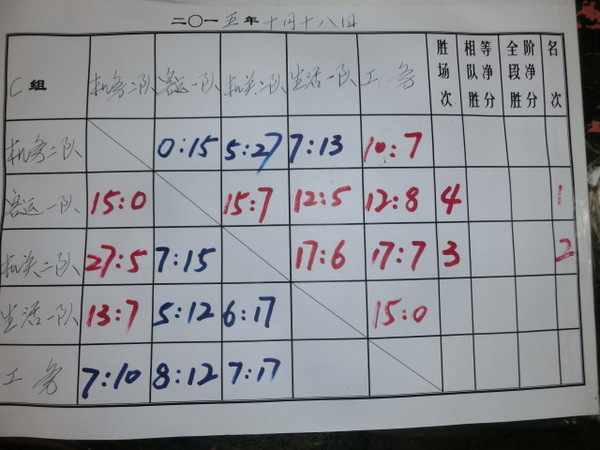 二〇一五年 十月十八日
C组 机务二队 客运一队 机关二队 生活一队 工务 胜场次 相等队净胜分 全阶段净胜分 名次
机务二队 0:15 5:27 7:13 10:7
客运一队 15:0 15:7 12:5 12:8 4 1
机关二队 27:5 7:15 17:6 17:7 3 2
生活一队 13:7 5:12 6:17 15:0
工务 7:10 8:12 7:17